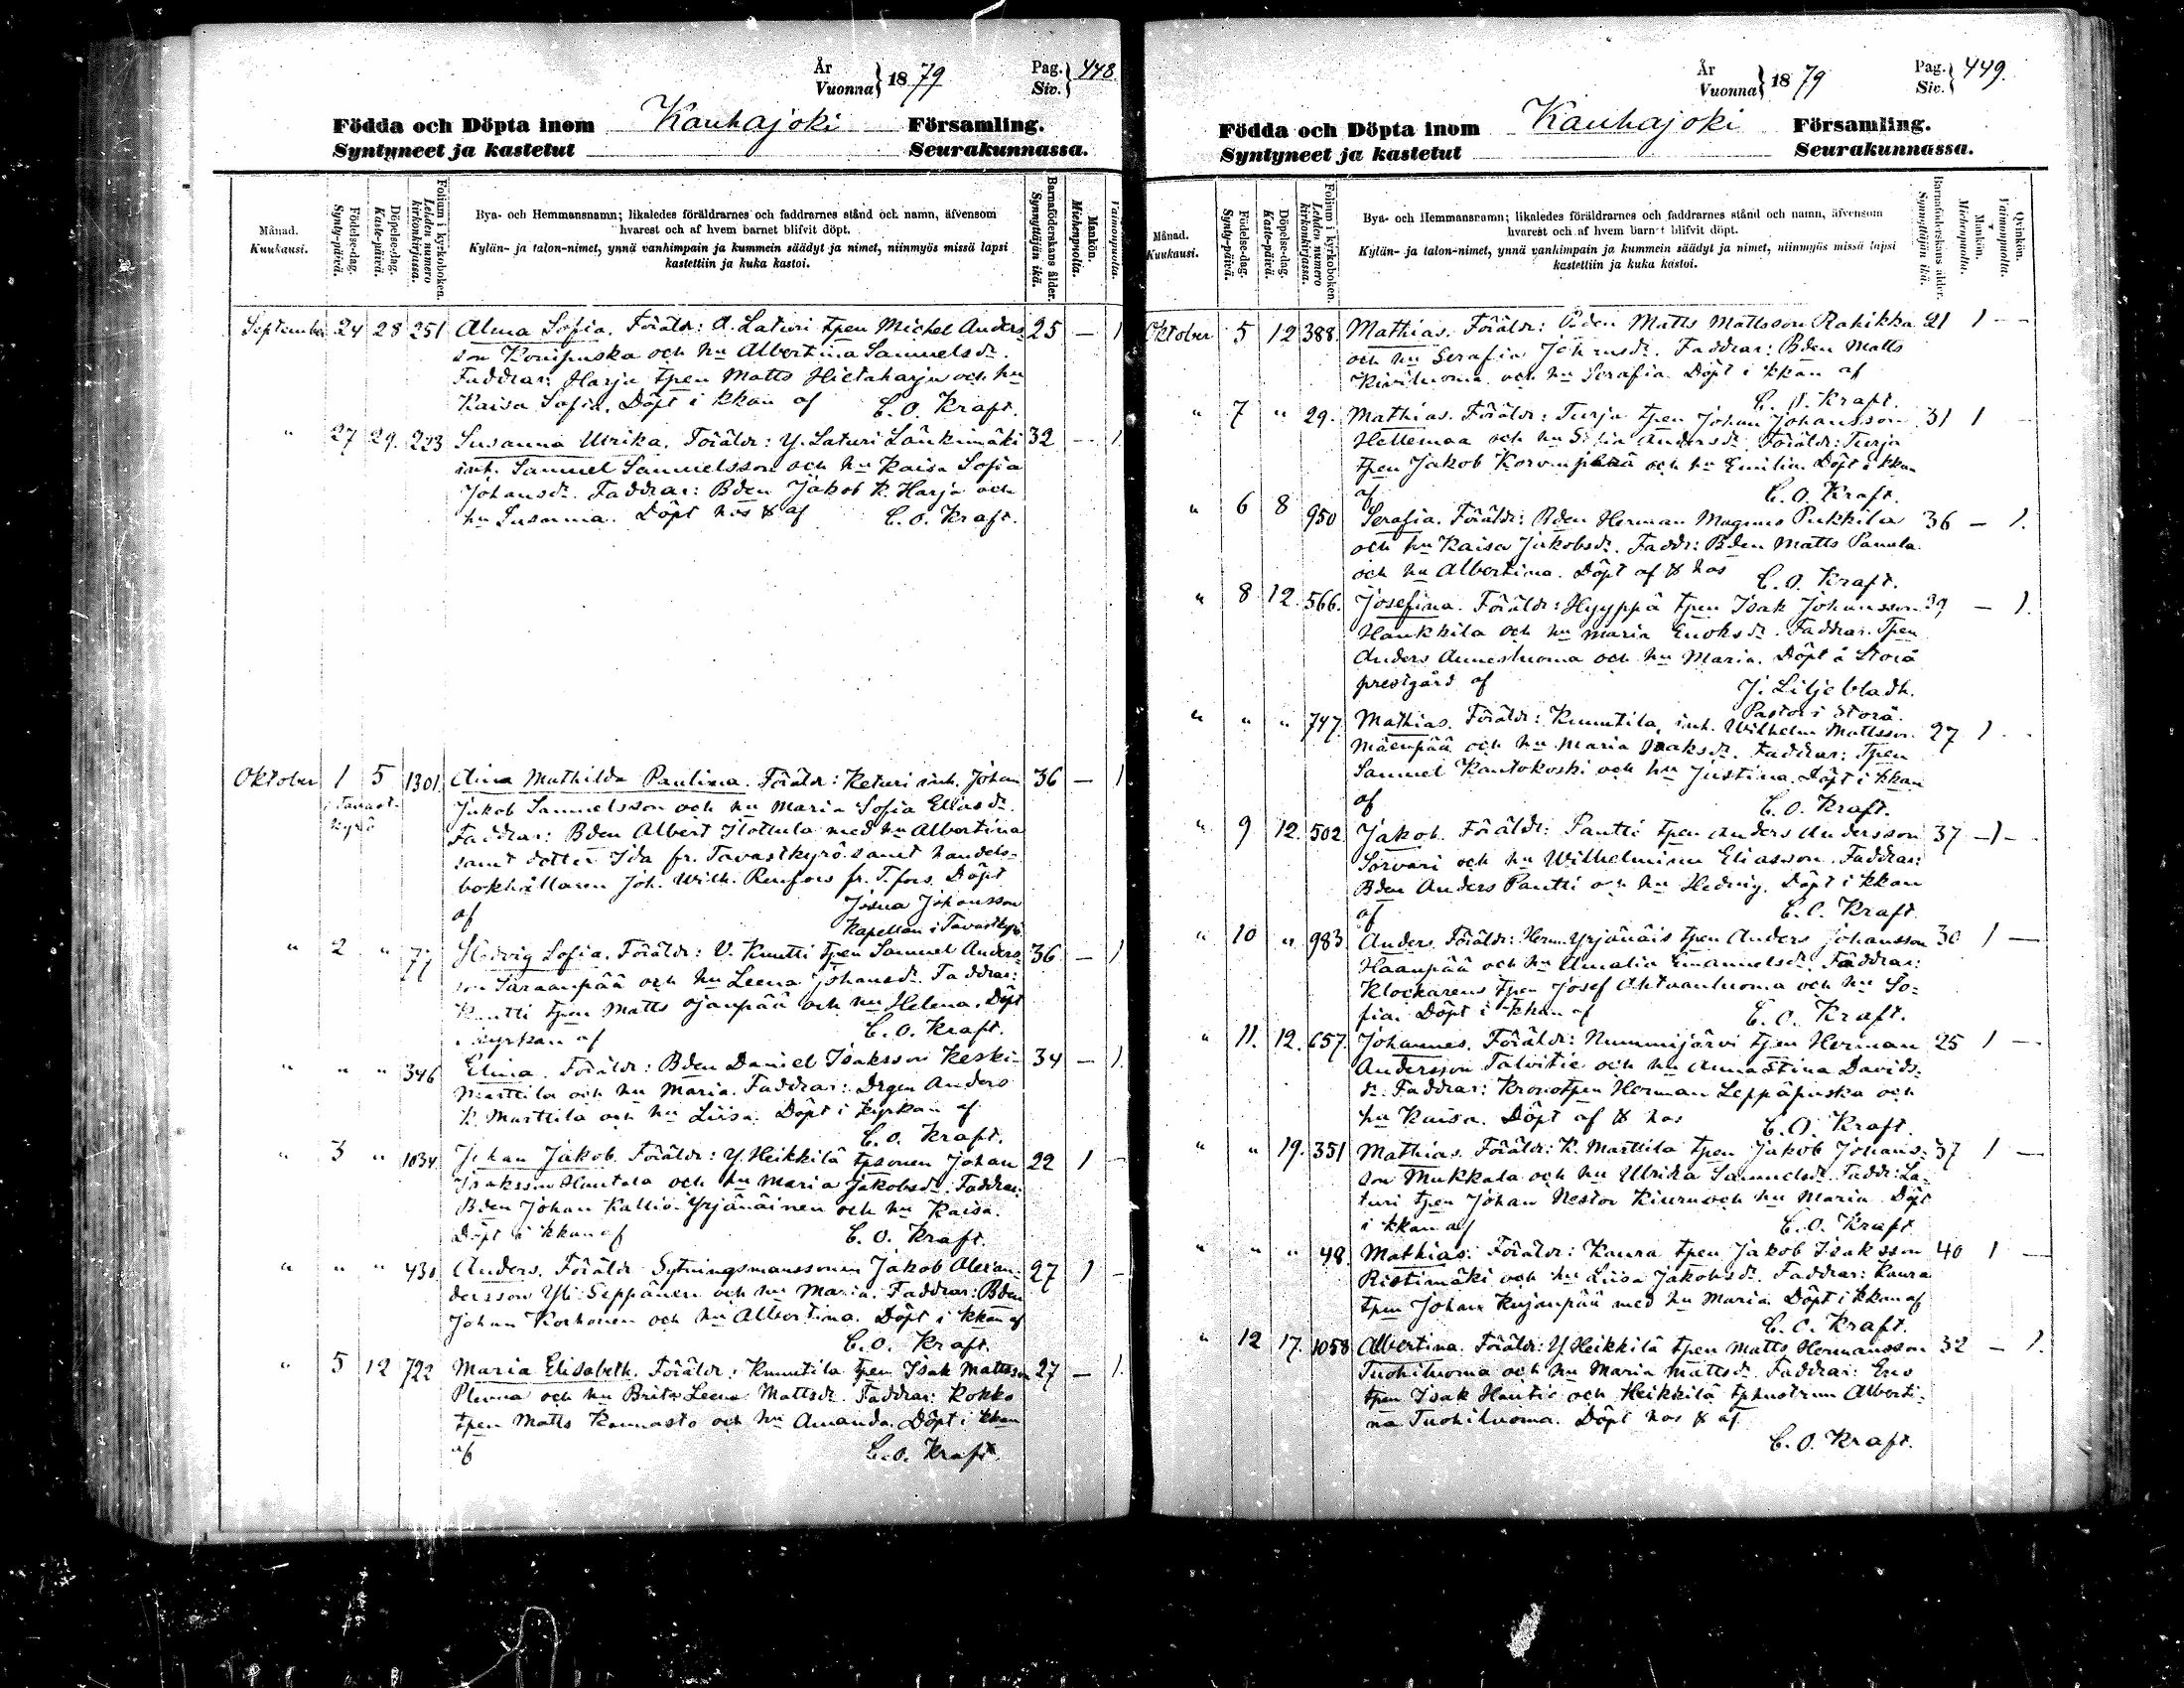 År
Vuonna } 1879
Pag.
Siv. } 448
Födda och Döpta inom Kauhajoki Församling.
Syntyneet ja kastetut Seurakunnassa.
Månad.
Kuukausi.
Födelse-dag.
Synty-päivä.
Döpelse-dag.
Kaste-päivä.
Folium i kyrkoboken.
Lehden numero kirkonkirjassa.
Bya- och Hemmansnamn; likaledes föräldrarnes och faddrarnes stånd och namn, äfvensom
hvarest och af hvem barnet blifvit döpt.
Kylän- ja talon-nimet, ynnä vanhimpain ja kummein säädyt ja nimet, niinmyös missä lapsi
kastettiin ja kuka kastoi.
Barnaföderskans ålder.
Synnyttäjän ikä.
Mankön.
Miehenpuolia.
Vaimonpuolia.
September 24 28 251 Alma Sofia. Föräldr: A. Laturi tpen Michel Anders- 25 — 1
son Konipuska och hu Albertina Samuelsdr.
Faddrar: Harja tpen Matts Hietaharju och hu
Kaisa Sofia. Döpt i kkan af C. O. Kraft.
" 27 29. 223 Susanna Ulrika. Föräldr: Y. Laturi Länkimäki 32 — 1.
inh. Samuel Samuelsson och hu Kaisa Sofia
Johansdr. Faddrar: Bden Jakob K. Harja och
hu Susanna. Döpt hos & af C. O. Kraft.
Oktober 1 5 1301 Aina Mathilda Paulina. Föräldr: Keturi inh. Johan 36 — 1
i Tavast-
kyrö
Jakob Samuelsson och hu Maria Sofia Eliasdr.
Faddrar: Bden Albert Hottula med hu Albertina
samt dotter Ida fr. Tavastkyrö samt handels-
bokhållaren Joh. Wilh. Renfors fr. T.fors. Döpt
af Josua Johansson
Kapellan i Tavastkyrö
" 2 " 77 Hedvig Sofia. Föräldr: V. Knutti tpen Samuel Anders- 36 — 1
son Saraanpää och hu Leena Johansdr. Faddrar:
Knutti tpen Matts Ojanpää och hu Helena. Döpt
i kyrkan af C. O. Kraft.
" " " 346 Elina. Föräldr: Bden Daniel Isaksson Keski- 34 — 1.
Marttila och hu Maria. Faddrar: Drgen Anders
K. Marttila och hu Liisa. Döpt i kyrkan af
C. O. Kraft.
" 3 " 1034 Johan Jakob. Föräldr: Y. Heikkilä tpsonen Johan 22 1 —
Isaksson Hautala och hu Maria Jakobsdr. Faddrar:
Bden Johan Kallio-Yrjänäinen och hu Kaisa.
Döpt i kkan af C. O. Kraft.
" " " 430 Anders. Föräldr Sytningsmanssonen Jakob Alexan- 27 1 —
dersson Yli Seppänen och hu Maria. Faddrar: Bden
Johan Korhonen och hu Albertina. Döpt i kkan af
C. O. Kraft.
" 5 12 722 Maria Elisabeth. Föräldr: Knuutila tpen Isak Mattsson 27 — 1.
Plenna och hu Brita Leena Mattsdr. Faddrar: Kokko
tpen Matts Kannasto och hu Amanda. Döpt i kkan
af C. O. Kraft.
År
Vuonna } 1879
Pag.
Siv. } 449.
Födda och Döpta inom Kauhajoki Församling.
Syntyneet ja kastetut Seurakunnassa.
Månad.
Kuukausi.
Födelse-dag.
Synty-päivä.
Döpelse-dag.
Kaste-päivä.
Folium i kyrkoboken.
Lehden numero kirkonkirjassa.
Bya- och Hemmansnamn; likaledes föräldrarnes och faddrarnes stånd och namn, äfvensom
hvarest och af hvem barnet blifvit döpt.
Kylän- ja talon-nimet, ynnä vanhimpain ja kummein säädyt ja nimet, niinmyös missä lapsi
kastettiin ja kuka kastoi.
Barnaföderskans ålder.
Synnyttäjän ikä.
Mankön.
Miehenpuolia.
Qvinkön.
Vaimonpuolia.
Oktober 5 12 388. Mathias. Föräldr: Bden Matts Mattsson Rahikka 21 1 —
och hu Serafia Johansdr. Faddrar: Bden Matts
Kiviluoma och hu Serafia. Döpt i kkan af
C. O. Kraft.
" 7 " 29. Mathias. Föräldr: Turja tpen Johan Johansson 31 1
Hellemaa och hu Sofia Andersdr. Föräldr: Turja
tpen Jakob och hu Emilia. Döpt i kkan
af C. O. Kraft.
" 6 8 950 Serafia. Föräldr: Bden Herman Magnus Pukkila 36 — 1.
och hu Kaisa Jakobsdr. Faddr: Bden Matts Panula
och hu Albertina. Döpt af & hos C. O. Kraft.
" 8 12. 566. Josefina. Föräldr: Hyyppä tpen Isak Johansson 39 — 1.
Haukkila och hu Maria Enoksdr. Faddrar. Tpen
Anders Annesluoma och hu Maria. Döpt å Storå
prestgård af J. Liljebladh.
Pastor i Storå.
" " " 747. Mathias. Föräldr: Knuutila, inh. Wilhelm Mattsson 27 1
Mäenpää och hu Maria Isaksdr. Faddrar: Tpen
Samuel Kantokoski och hu Justina. Döpt i kkan
af C. O. Kraft.
" 9 12. 502 Jakob. Föräldr: Pantti tpen Anders Andersson 37 —1—
Sorvari och hu Wilhelmina Eliasson. Faddrar:
Bden Anders Pantti och hu Hedvig. Döpt i kkan
af C. O. Kraft.
" 10 " 983 Anders. Föräldr: Herm. Yrjänäis tpen Anders Johansson 30 1 —
Haanpää och hu Amalia Emanuelsdr. Faddrar:
Klockarens tpen Josef Ahtvanluoma och hu So-
fia. Döpt i kkan af C. O. Kraft.
" 11. 12. 657. Johannes. Föräldr: Nummijärvi tpen Herman 25 1 —
Andersson Talvitie och hu Annastina Davids-
dr. Faddrar: Kronotpen Herman Leppäpuska och
hu Kaisa. Döpt af & hos C. O. Kraft.
" " 19. 351 Mathias. Föräldr: K. Marttila tpen Jakob Johans- 37 1 —
son Mukkala och hu Ulrika Samuelsdr. Faddr: La-
turi tpen Johan Nestor Kiuru och hu Maria. Döpt
i kkan af C. O. Kraft
" " " 48. Mathias. Föräldr: Kaura tpen Jakob Isaksson 40 1 —
Ristimäki och hu Liisa Jakobsdr. Faddrar: Kaura
tpen Johan Kujanpää med hu Maria. Döpt i kkan af
C. O. Kraft.
" 12 17. 1058 Albertina. Föräldr: Y. Heikkilä tpen Matts Hermansson 32 — 1.
Tuohiluoma och hu Maria Mattsdr. Faddrar: Ens
tpen Isak Hautio och Heikkilä tphustrun Alberti-
na Tuohiluoma. Döpt hos & af
C. O. Kraft.